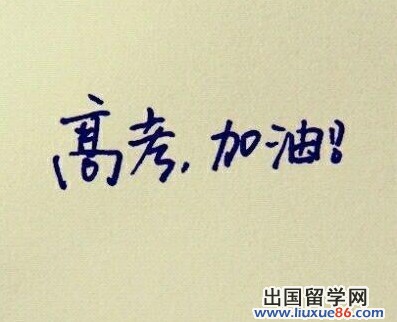 高考,加油!!
出国留学网
www.liuxue86.com